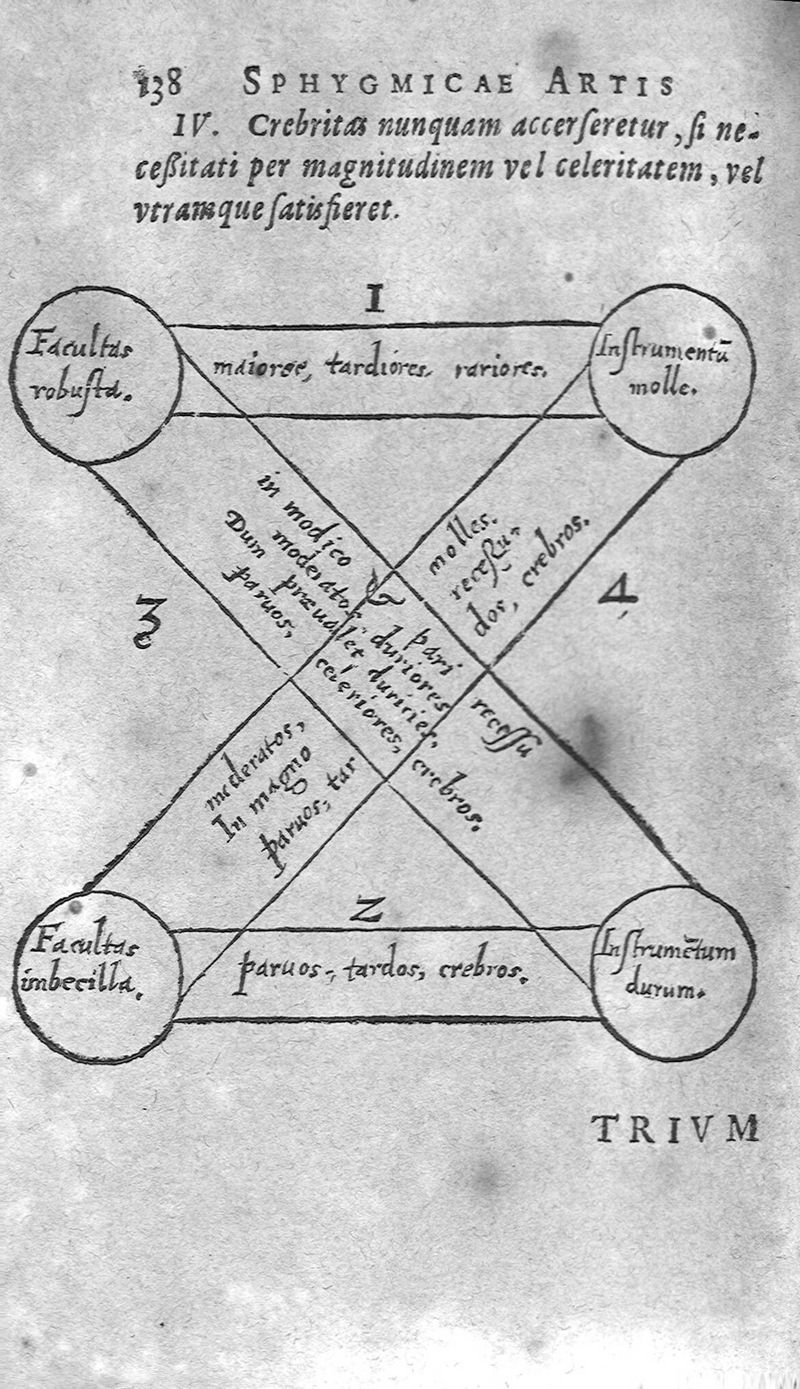 138 SPHYGMICAE ARTIS
IV. Crebritas nunquam accerſeretur, ſi ne-
ceßitati per magnitudinem vel celeritatem, vel
vtramque ſatisfieret.
1
Facultas
robuſta.
maiores, tardiores, rariores.
Inſtrumentū
molle.
in modico & pari receſſu
moderatos, duriores
Dum præualet duricies,
paruos, celeriores, crebros.
3
4
moderatos, molles.
In magno receſſu,
paruos, tardos, crebros.
2
Facultas
imbecilla.
paruos, tardos, crebros.
Inſtrumētum
durum.
TRIVM